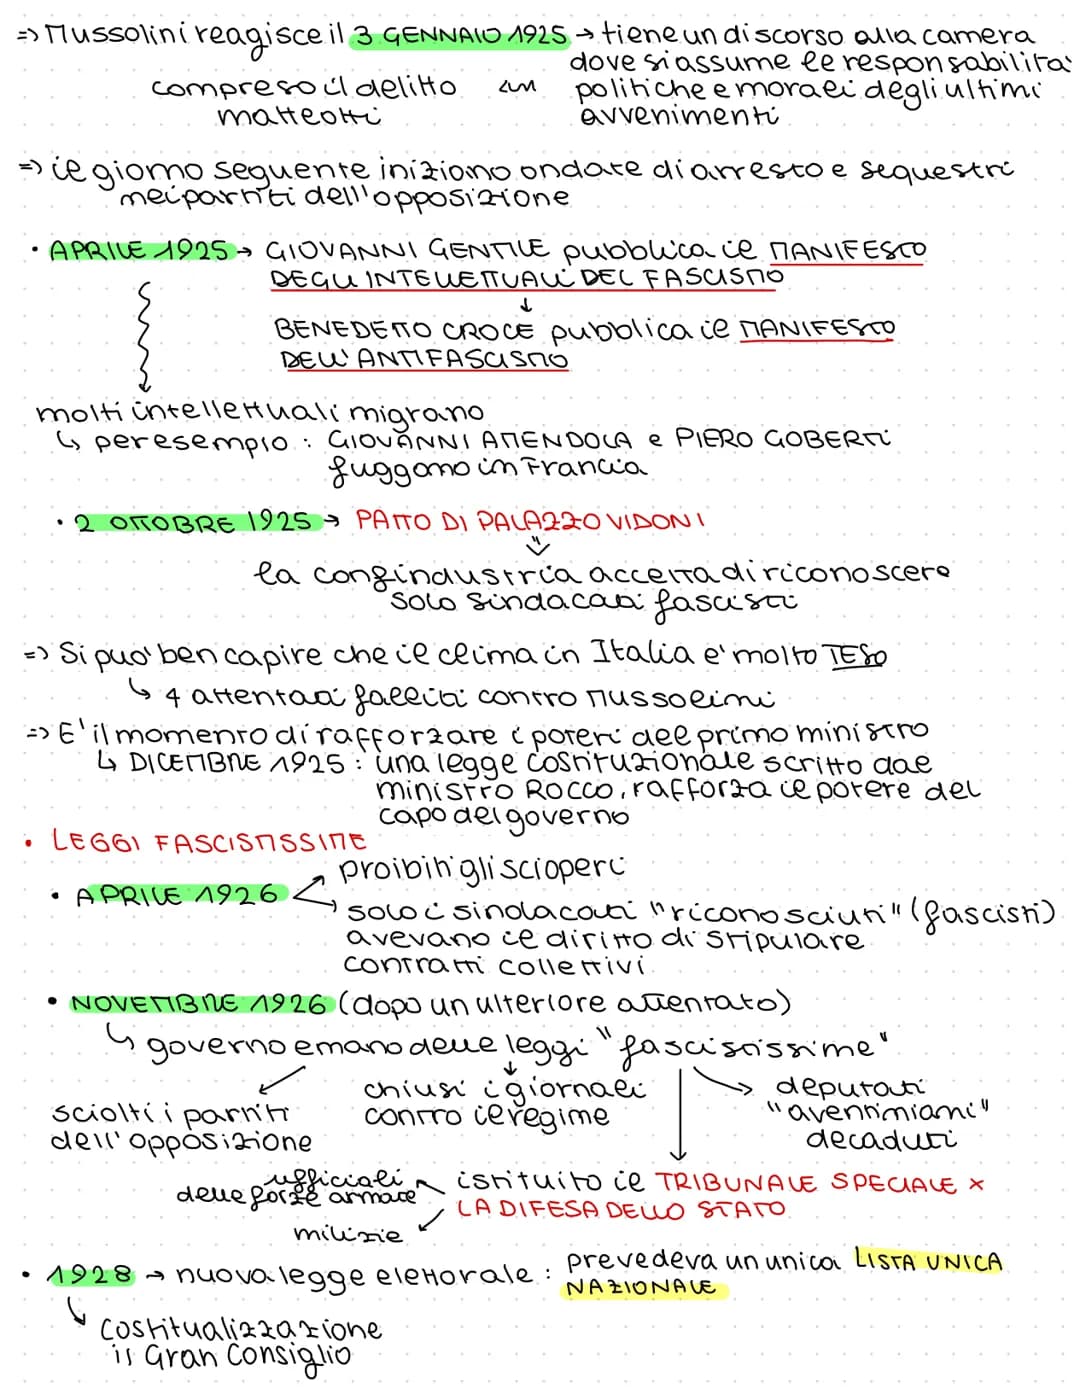 => Mussolini reagisce il 3 GENNAIO 1925 → tiene un discorso alla camera
dove si assume le responsabilità
compreso il delitto ← politiche e morali degli ultimi
matteotti avvenimenti
=> il giorno seguente iniziano ondate di arresto e sequestri
nei partiti dell'opposizione
• APRILE 1925 → GIOVANNI GENTILE pubblica il MANIFESTO
DEGLI INTELLETTUALI DEL FASCISMO
↓
BENEDETTO CROCE pubblica il MANIFESTO
DELL'ANTIFASCISMO
molti intellettuali migrano
↳ per esempio : GIOVANNI AMENDOLA e PIERO GOBERTI
fuggono in Francia
• 2 OTTOBRE 1925 → PATTO DI PALAZZO VIDONI
la confindustria accetta di riconoscere
solo sindacati fascisti
=> Si puo' ben capire che il clima in Italia e' molto TESO
↳ 4 attentati falliti contro Mussolini
=> E' il momento di rafforzare i poteri del primo ministro
↳ DICEMBRE 1925 : una legge costituzionale scritto dal
ministro Rocco, rafforza il potere del
capo del governo
• LEGGI FASCISTISSIME
proibiti gli scioperi
• APRILE 1926
solo i sindacati "riconosciuti" (fascisti)
avevano il diritto di stipulare
contratti collettivi
• NOVEMBRE 1926 (dopo un ulteriore attentato)
↳ governo emano delle leggi "fascistissime"
chiusi i giornali → deputati
sciolti i partiti contro il regime "aventiniani"
dell'opposizione decaduti
ufficiali istituito il TRIBUNALE SPECIALE x
delle forze armate LA DIFESA DELLO STATO
milizie
• 1928 → nuova legge elettorale : prevedeva un unica LISTA UNICA
NAZIONALE
costitualizzazione
is Gran Consiglio